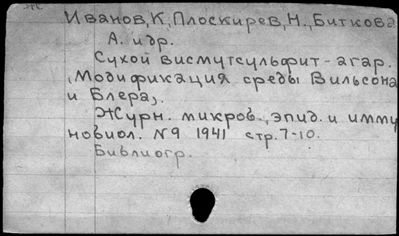 Иванов, К., Плоскирев, Н., Биткова
А. и др.
Сухой висмутсульфит-агар.
(Модификация среды Вильсона
и Блера).
Журн. микров., эпид. и имму
новиол. №9 1941 стр. 7-10.
Библиогр.